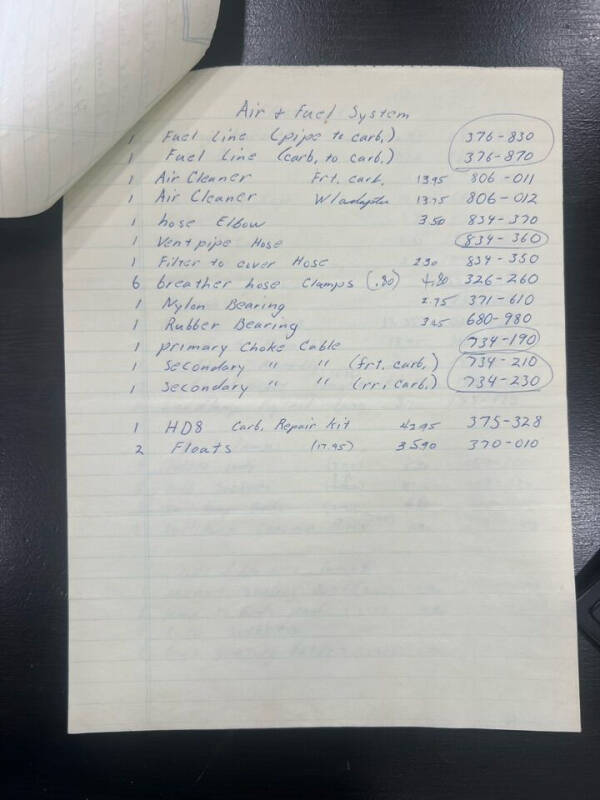 Air + Fuel System
1 Fuel Line (pipe to carb.) 376-830
1 Fuel Line (carb. to carb.) 376-870
1 Air Cleaner Frt. carb. 13.95 806-011
1 Air Cleaner W/adapter 806-012
1 hose Elbow 3.50 834-370
1 Vent pipe Hose 834-360
1 Filter to cover Hose 834-350
6 breather hose clamps (.80) 4.80 326-260
1 Nylon Bearing 2.75 371-610
1 Rubber Bearing 680-980
1 primary Choke Cable 734-190
1 Secondary " " (frt. carb.) 734-210
1 Secondary " " (rr. carb.) 734-230
1 HD8 Carb. Repair Kit 42.95 375-328
2 Floats (17.95) 35.90 370-010